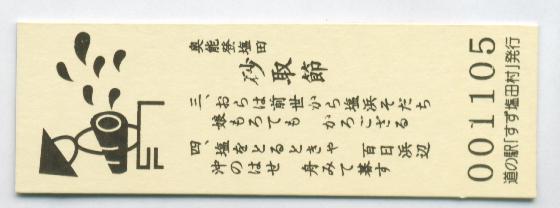 奥能登塩田
砂取節
三、おらは前世から塩浜そだち
娘もろても かろござる
四、塩をとるときゃ 百日浜辺
沖のはせ 舟みて暮す
001105
道の駅「すず塩田村」発行